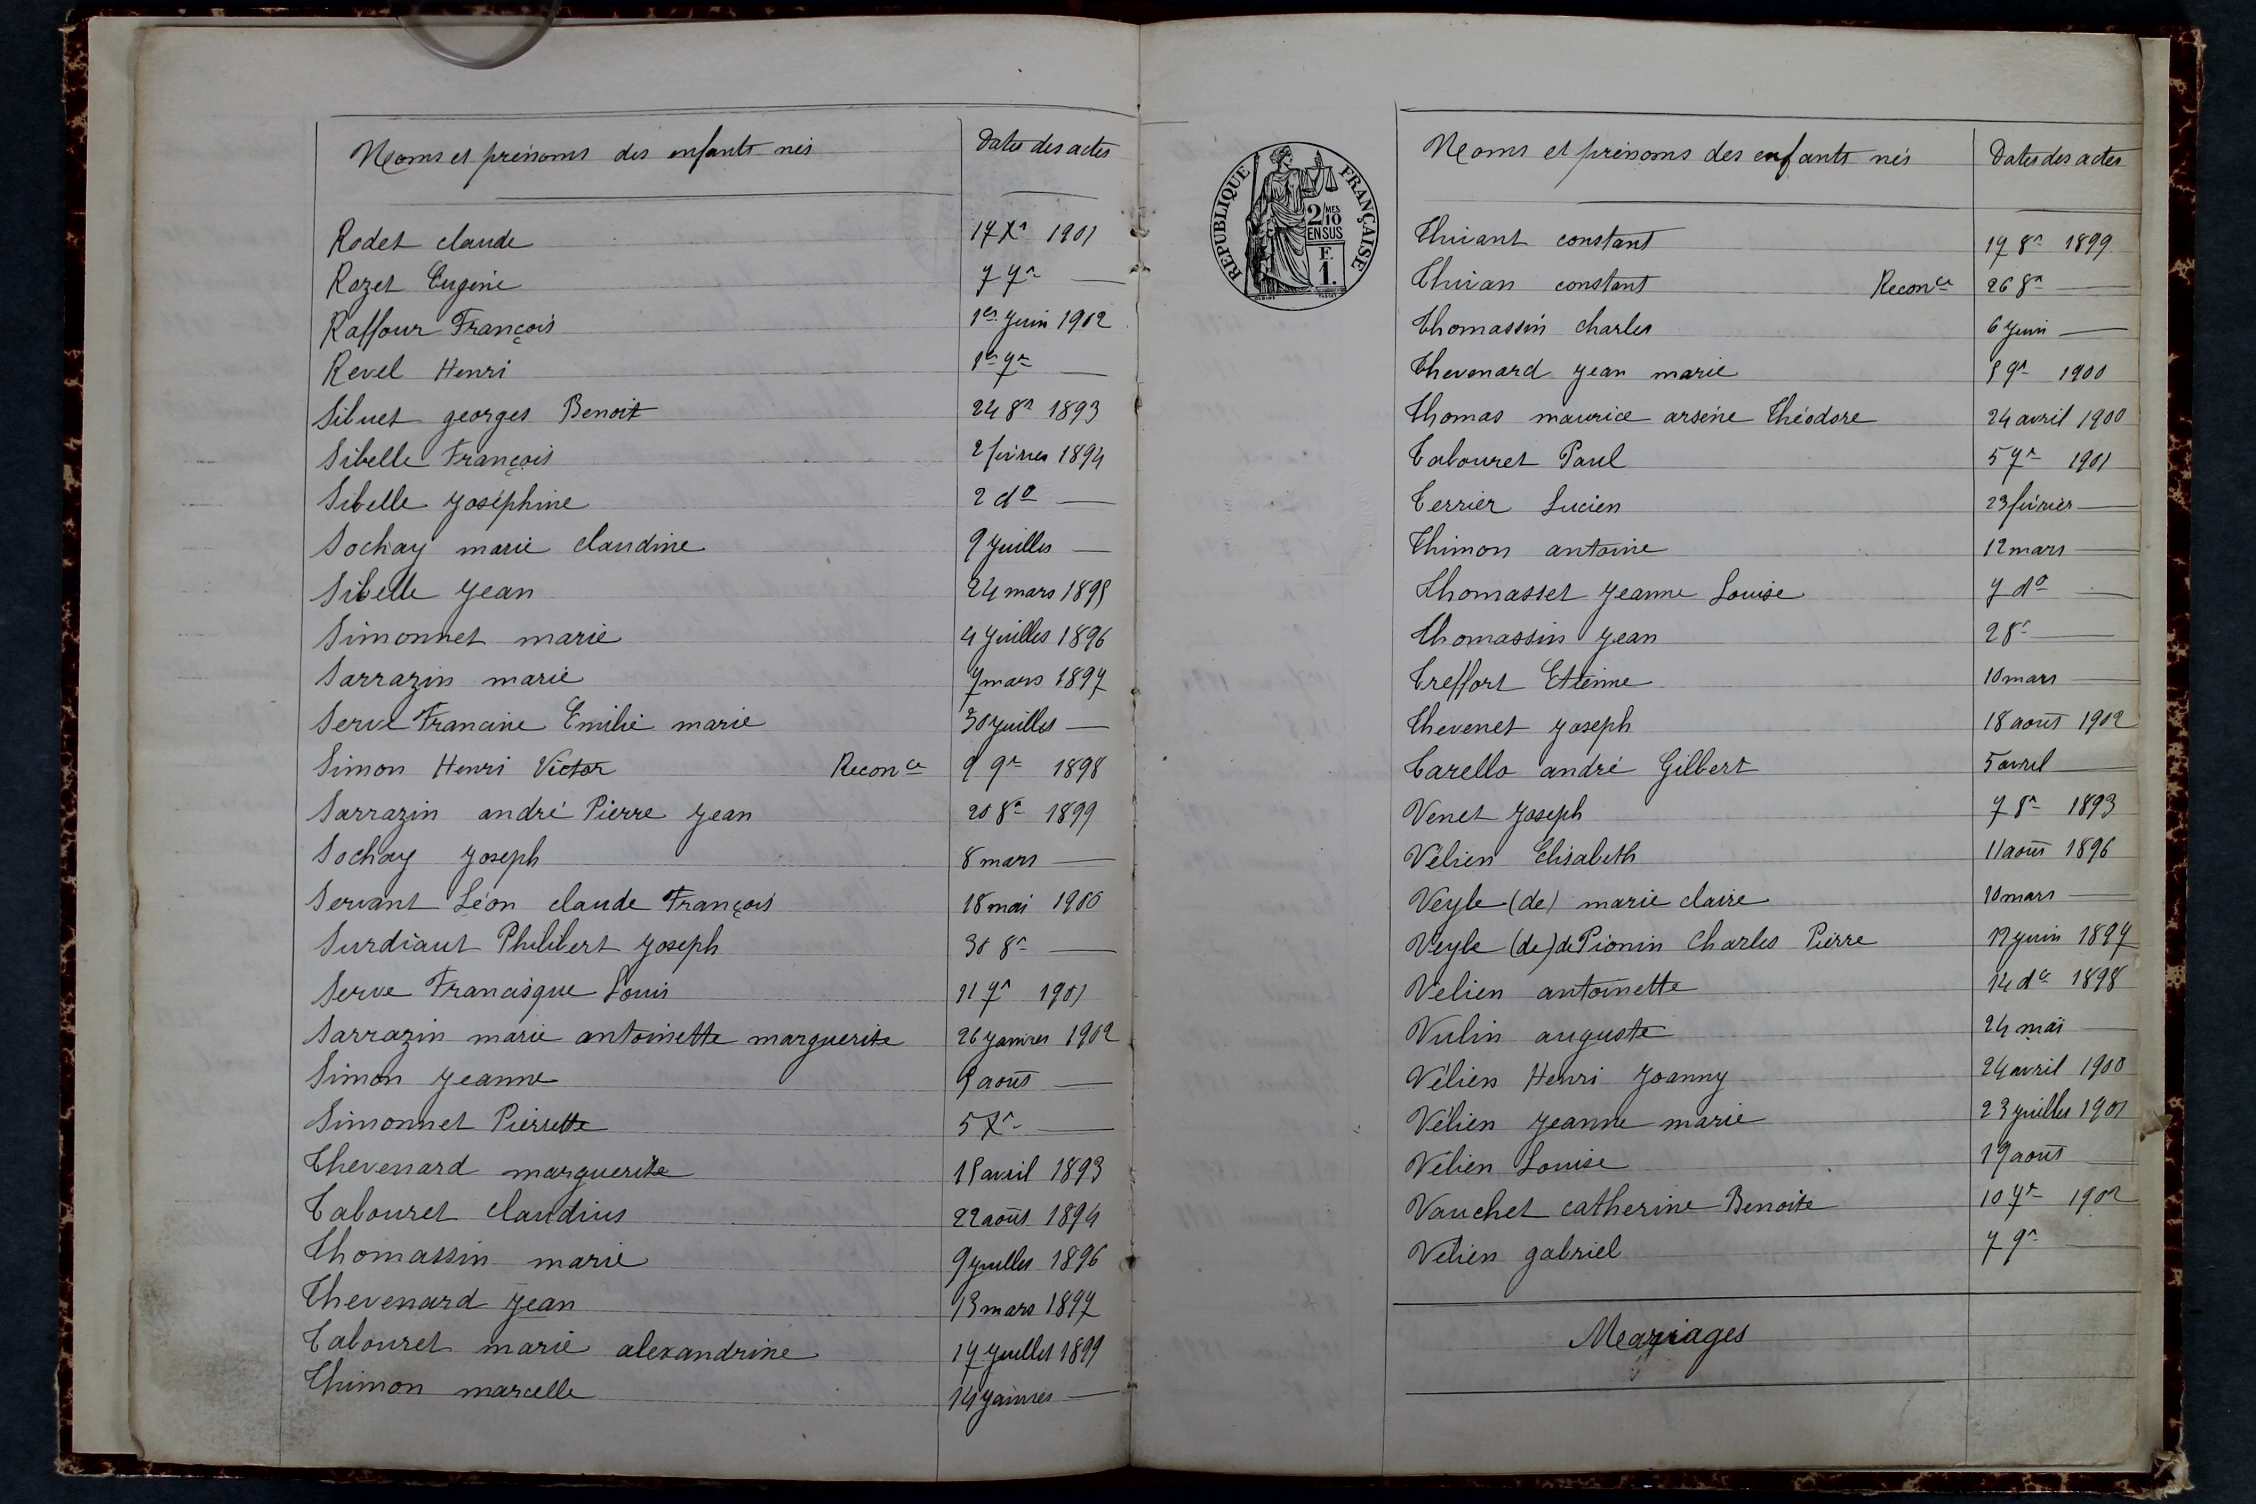 Noms et prénoms des enfants nés Dates des actes
Rodet claude 17 Xr 1901
Rozet Eugène 7 7r —
Raffour François 1er juin 1902
Revel Henri 1er 7r —
Sibuet georges Benoit 24 8r 1893
Sibelle François 2 février 1894
Sibelle Joséphine 2 do —
Sochay marie claudine 9 juillet —
Sibelle Jean 24 mars 1895
Simonnet marie 4 juillet 1896
Sarrazin marie 7 mars 1897
Serve Francine Emilie marie 30 juillet —
Simon Henri Victor Reconce 9 9r 1898
Sarrazin andré Pierre Jean 20 8r 1899
Sochay Joseph 8 mars —
Servant Léon claude François 18 mai 1900
Surdiaut Philibert Joseph 30 8r —
Serve Francisque Louis 11 7r 1901
Sarrazin marie antoinette marguerite 26 janvier 1902
Simon Jeanne 9 août —
Simonnet Pierrette 5 Xr —
Thevenard marguerite 15 avril 1893
Tabouret claudius 22 août 1894
Thomassin marie 9 juillet 1896
Thevenard Jean 13 mars 1897
Tabouret marie alexandrine 17 juillet 1899
Thimon marcelle 14 janvier —
REPUBLIQUE FRANÇAISE
2/10 MES
EN SUS
F.
1.
Noms et prénoms des enfants nés Dates des actes
Thivant constant 17 8r 1899
Thivan constant Reconce 26 8r —
Thomassin charles 6 juin —
Thevenard Jean marie 5 9r 1900
Thomas maurice arsène Théodore 24 avril 1900
Tabouret Paul 5 7r 1901
Terrier Lucien 23 février —
Thimon antoine 12 mars —
Thomasset Jeanne Louise 7 do —
Thomassin Jean 2 8r —
Treffort Etienne 10 mars —
Thevenet Joseph 18 août 1902
Tarello andré Gilbert 5 avril —
Venet Joseph 7 8r 1893
Vélien Elisabeth 11 août 1896
Veyle (de) marie claire 10 mars —
Veyle (de) de Pionin Charles Pierre 17 juin 1897
Velien antoinette 14 de 1898
Vulin auguste 24 mai —
Vélien Henri Joanny 24 avril 1900
Vélien Jeanne marie 23 juillet 1901
Vélien Louise 19 août —
Vauchet catherine Benoite 10 7r 1902
Velien gabriel 7 9r —
Mariages